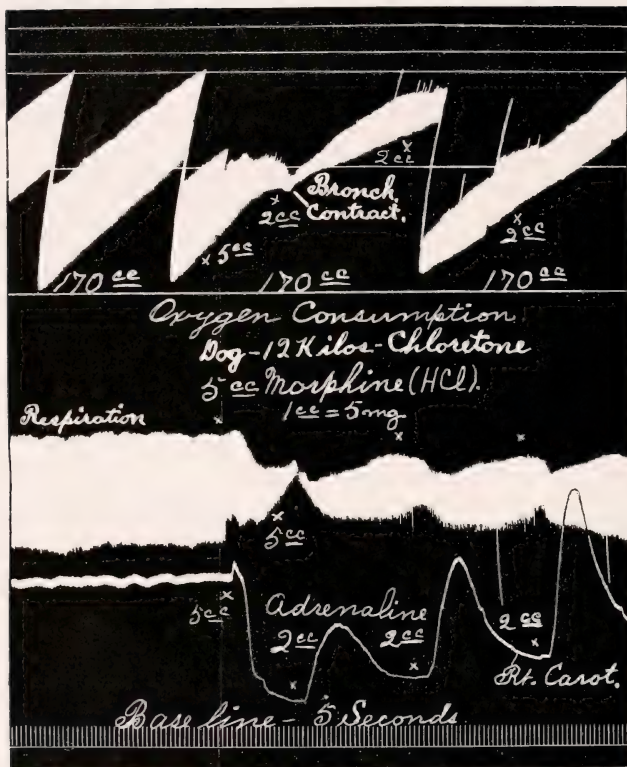 2 cc
Bronch.
Contract.
2 cc
2 cc
5 cc
170 cc 170 cc 170 cc
Oxygen Consumption
Dog-12 Kilos-Chloretone
5 cc Morphine (HCl).
1 cc = 5 mg
Respiration
5 cc
5 cc Adrenaline
2 cc 2 cc 2 cc
Rt. Carot.
Base line - 5 Seconds